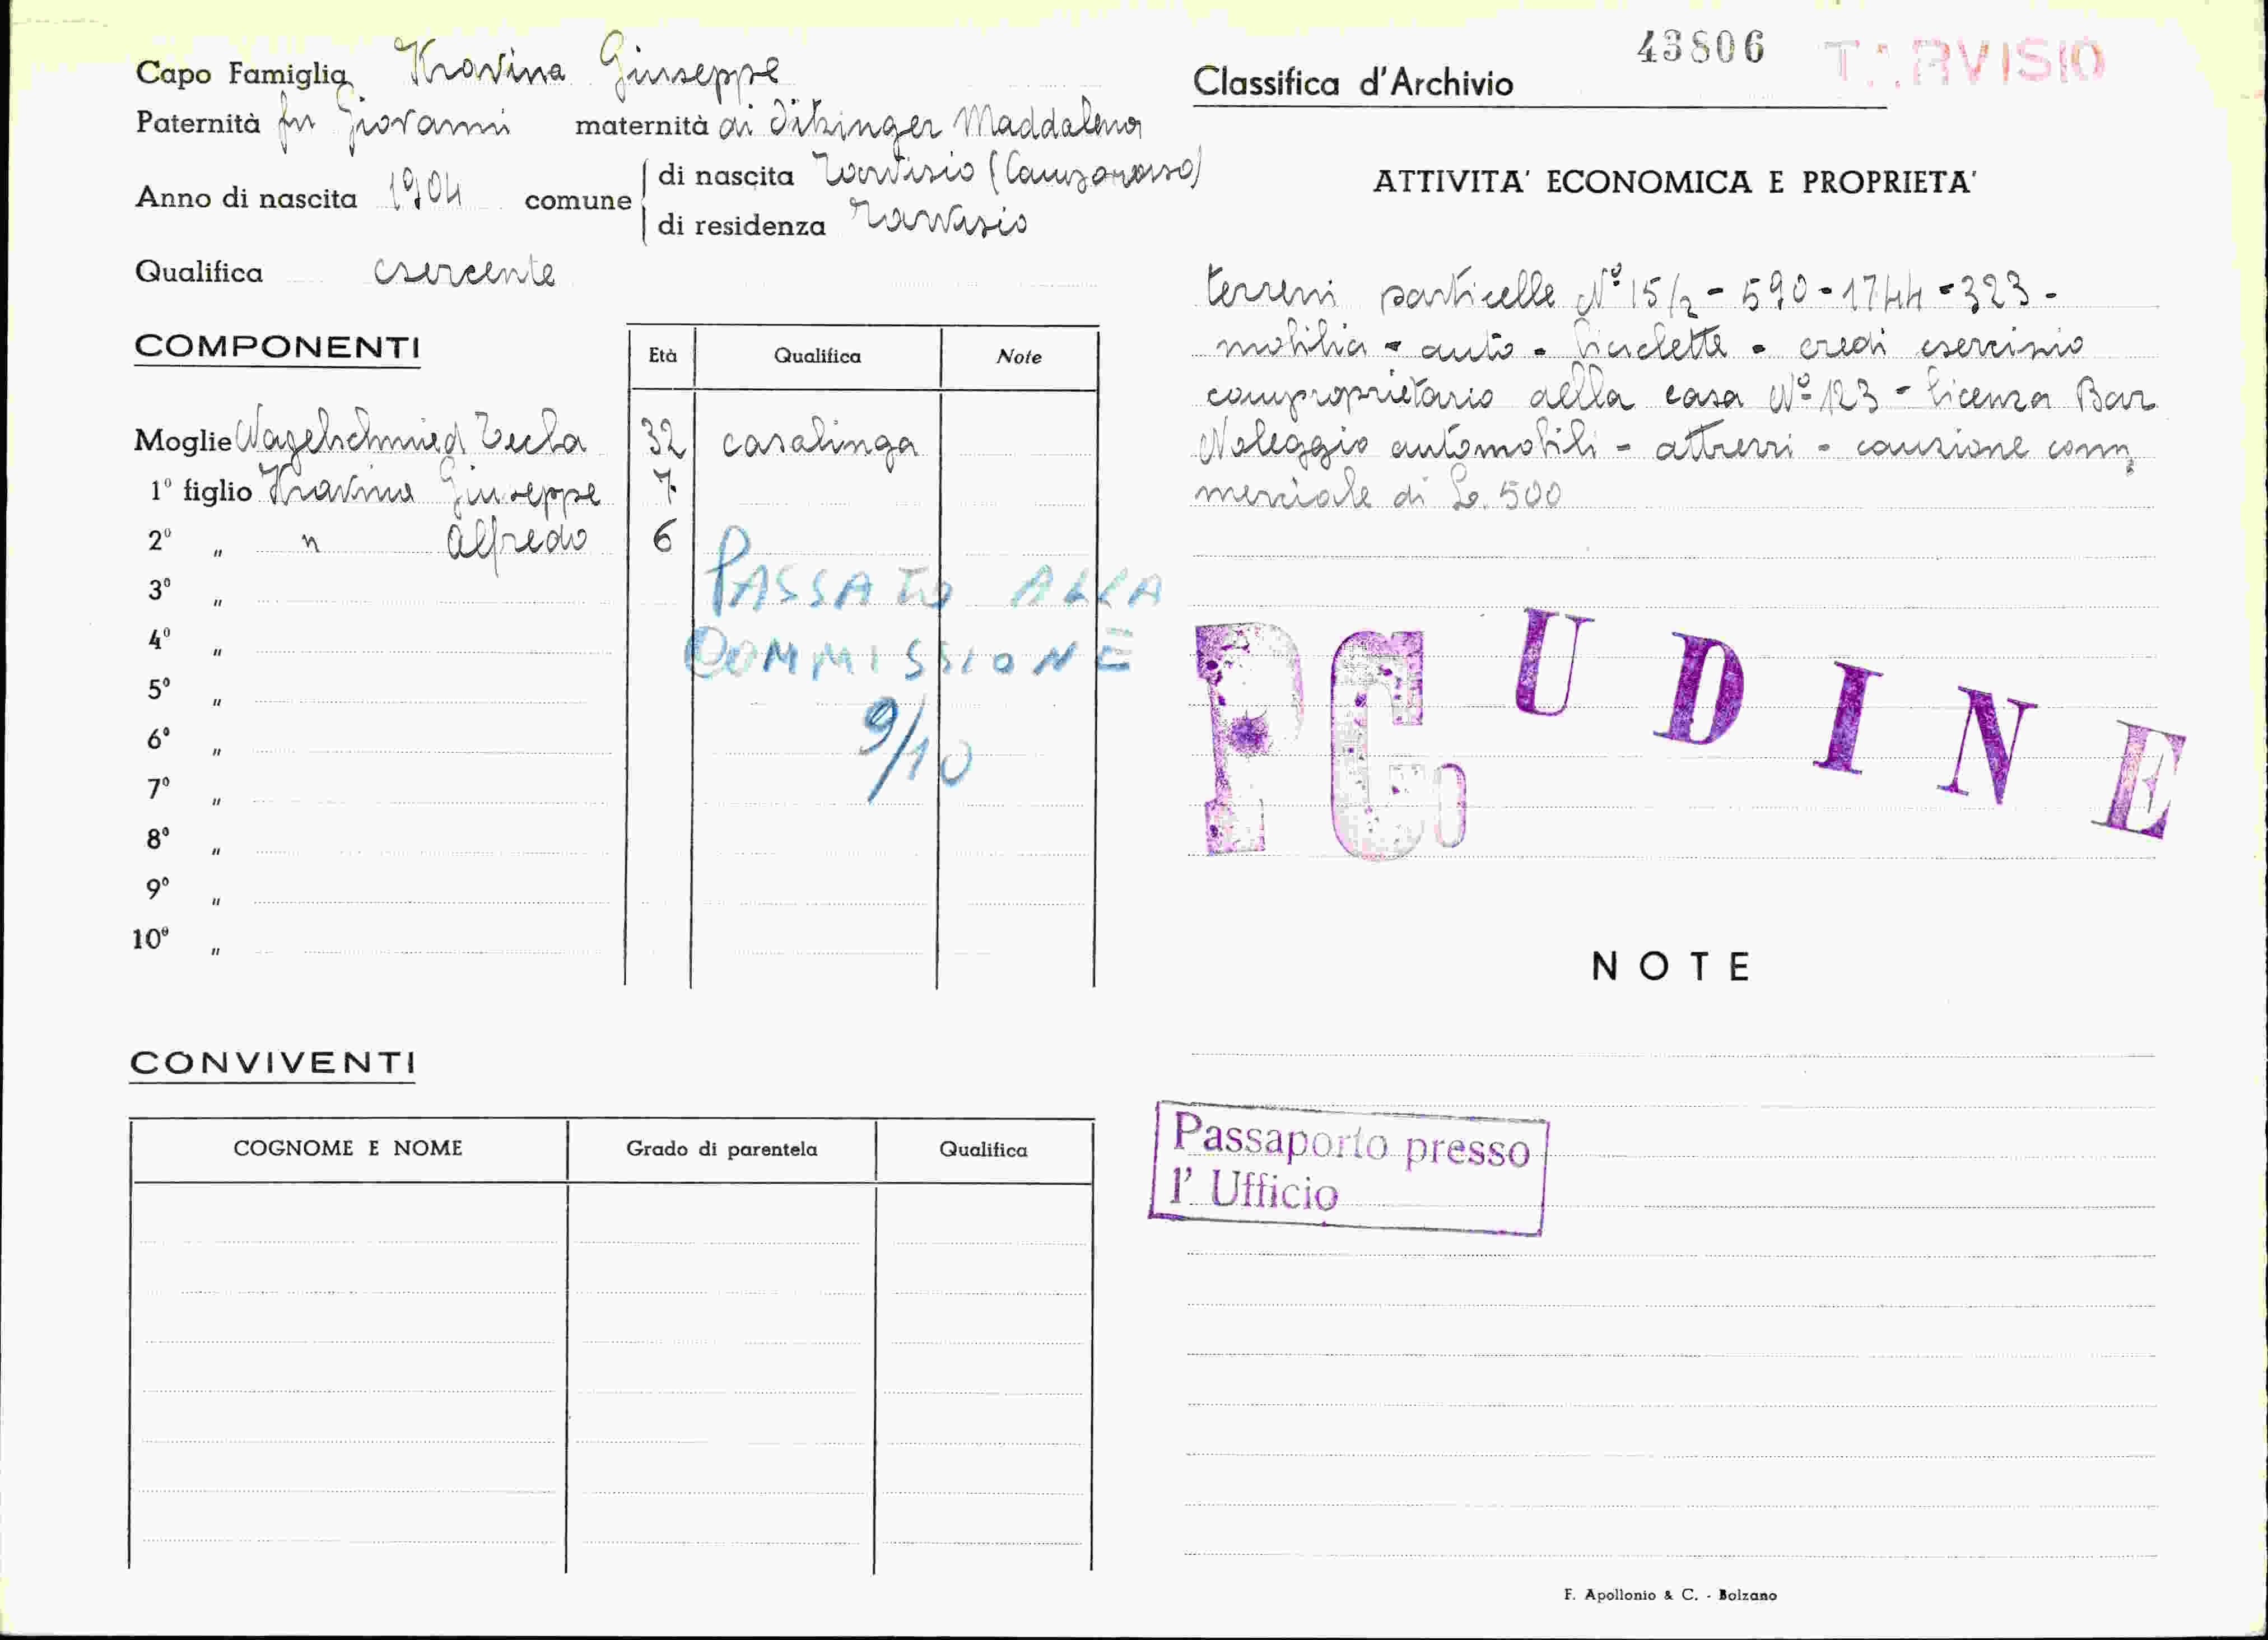 Capo Famiglia Kravina Giuseppe
Paternità fu Giovanni maternità di Ditzinger Maddalena
Anno di nascita 1904 comune di nascita Tarvisio (Camporosso)
di residenza Tarvisio
Qualifica esercente
COMPONENTI Età Qualifica Note
Moglie Wagelschmied Tecla 32 casalinga
1º figlio Kravina Giuseppe 7
2º " " Alfredo 6
3º "
4º "
5º "
6º "
7º "
8º "
9º "
10º "
PASSATO ALLA
COMMISSIONE
9/10
CONVIVENTI
COGNOME E NOME Grado di parentela Qualifica
Classifica d'Archivio 43806 TARVISIO
ATTIVITA' ECONOMICA E PROPRIETA'
terreni particelle Nº 15/2 - 590 - 1744 - 323 -
mobilia - auto - biciclette - credi esercizio
comproprietario della casa Nº 123 - licenza Bar
Noleggio automobili - attrezzi - cauzione com=
merciale di L. 500
PC. UDINE
NOTE
Passaporto presso
l' Ufficio
F. Apollonio & C. - Bolzano